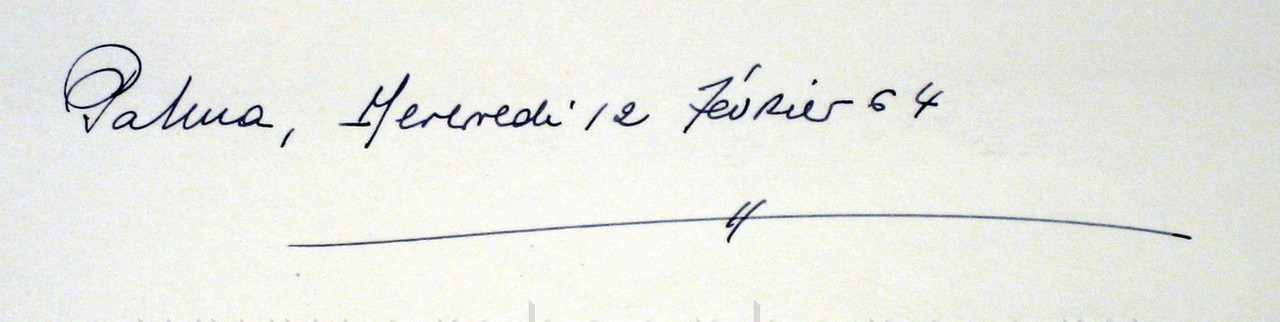 Palma, Mercredi 12 Février 64